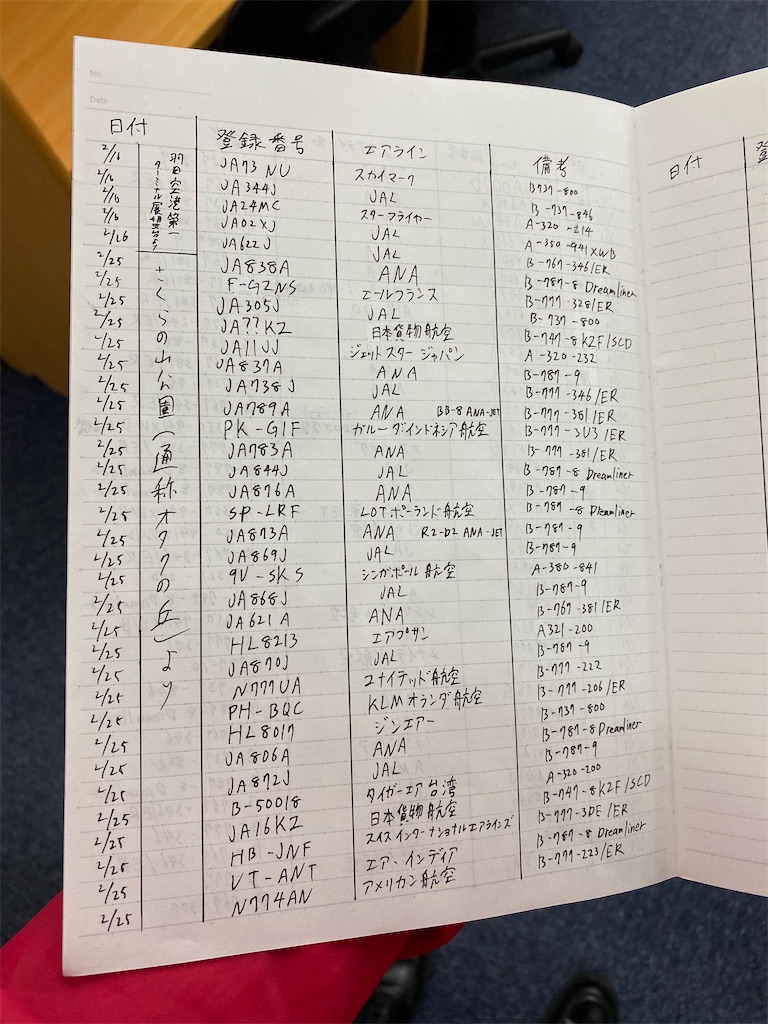 No.
Date
日付 登録番号 エアライン 備考
羽田空港第一ターミナル展望デッキより
2/16 JA73NU スカイマーク B737-800
2/16 JA344J JAL B-737-846
2/16 JA24MC スターフライヤー A-320-214
2/16 JA02XJ JAL A-350-941XWB
2/16 JA622J JAL B-767-346/ER
さくらの山公園(通称オタクの丘)より
2/25 JA838A ANA B-787-8 Dreamliner
2/25 F-GZNS エールフランス B-777-328/ER
2/25 JA305J JAL B-737-800
2/25 JA??KZ 日本貨物航空 B-747-8KZF/SCD
2/25 JA11JJ ジェットスタージャパン A-320-232
2/25 JA837A ANA B-787-9
2/25 JA738J JAL B-777-346/ER
2/25 JA789A ANA BB-8 ANA-JET B-777-381/ER
2/25 PK-GIF ガルーダインドネシア航空 B-777-3U3/ER
2/25 JA783A ANA B-777-381/ER
2/25 JA844J JAL B-787-8 Dreamliner
2/25 JA876A ANA B-787-9
2/25 SP-LRF LOTポーランド航空 B-787-8 Dreamliner
2/25 JA873A ANA R2-D2 ANA-JET B-787-9
2/25 JA869J JAL B-787-9
2/25 9V-SKS シンガポール航空 A-380-841
2/25 JA868J JAL B-787-9
2/25 JA621A ANA B-767-381/ER
2/25 HL8213 エアプサン A321-200
2/25 JA870J JAL B-787-9
2/25 N777UA ユナイテッド航空 B-777-222
2/25 PH-BQC KLMオランダ航空 B-777-206/ER
2/25 HL8017 ジンエアー B-737-800
2/25 JA806A ANA B-787-8 Dreamliner
2/25 JA872J JAL B-787-9
2/25 B-50018 タイガーエア台湾 A-320-200
2/25 JA16KZ 日本貨物航空 B-747-8KZF/SCD
2/25 HB-JNF スイスインターナショナルエアラインズ B-777-3DE/ER
2/25 VT-ANT エア・インディア B-787-8 Dreamliner
2/25 N774AN アメリカン航空 B-777-223/ER
日付